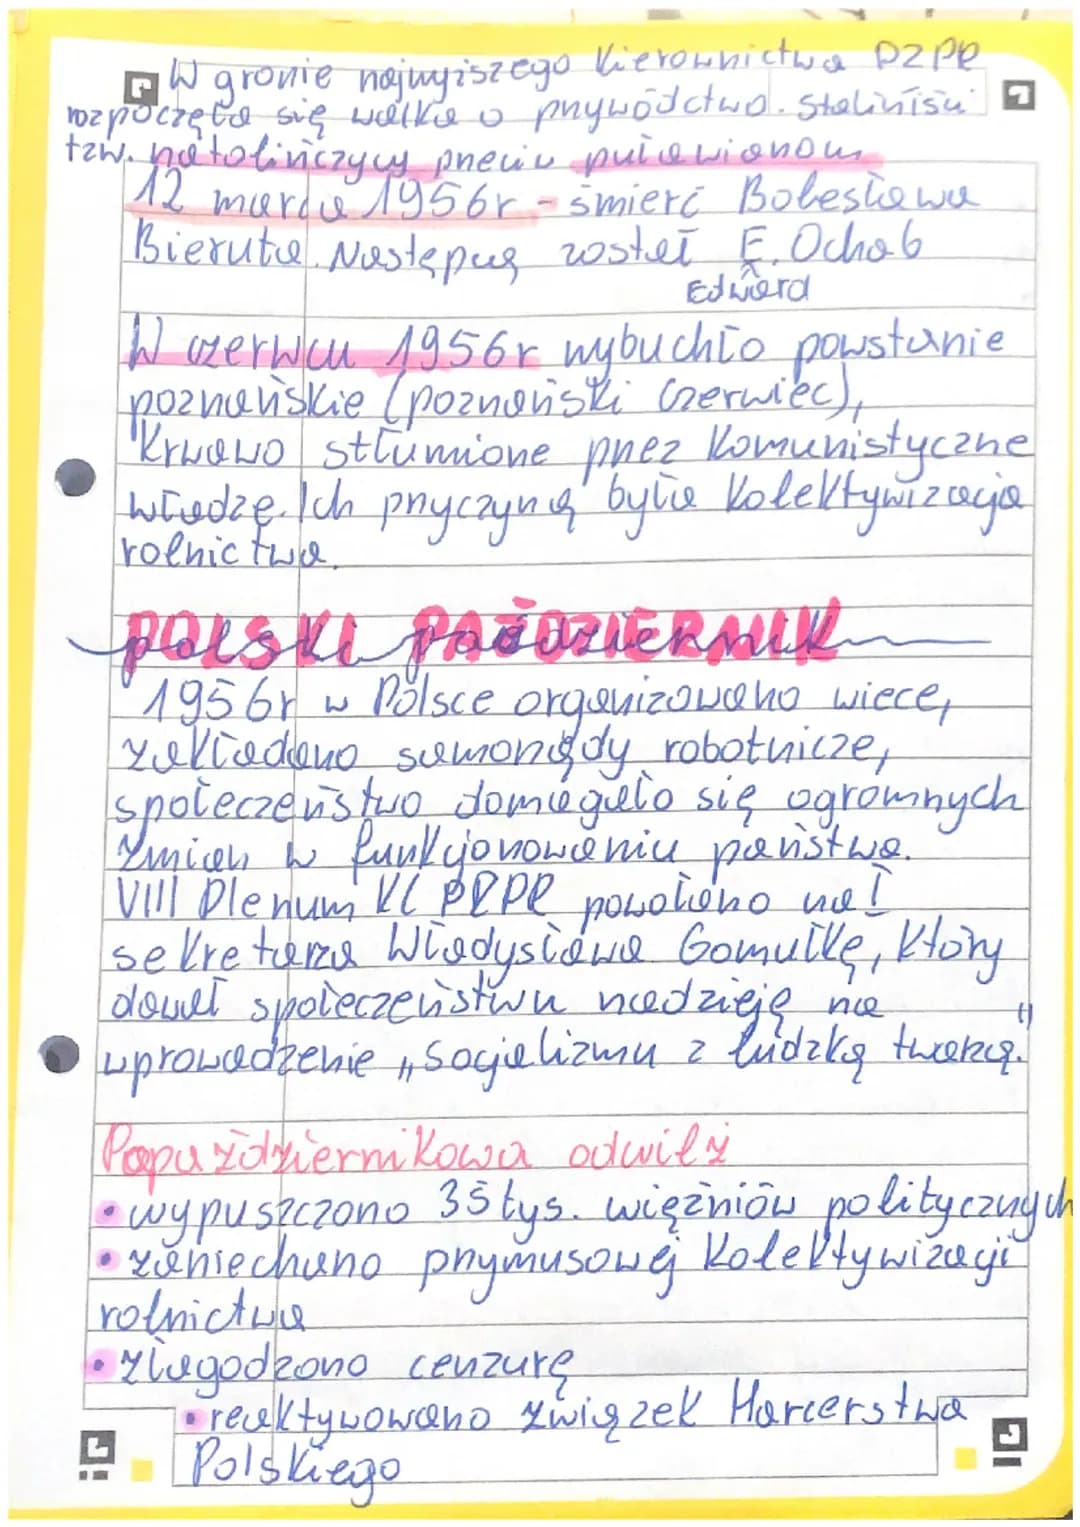 W gronie najwyższego Kierownictwa PZPR
rozpoczęła się walka o przywództwo. Staliniści
tzw. natolińczycy przeciw puławianom
12 marca 1956r - śmierć Bolesława
Bieruta. Następcą został E. Ochab
Edward
W czerwcu 1956r wybuchło powstanie
poznańskie (poznański Czerwiec),
Krwawo stłumione przez Komunistyczne
władzę. Ich przyczyną była Kolektywizacja
rolnictwa.
POLSKI PAŹDZIERNIK
1956r w Polsce organizowano wiece,
zakładano samorządy robotnicze,
społeczeństwo domagało się ogromnych
zmian w funkcjonowaniu państwa.
VIII Plenum KC PZPR powołano na I
sekretarza Władysława Gomułkę, Który
dawał społeczeństwu nadzieję na
wprowadzenie „Socjalizmu z ludzką twarzą."
Popaździernikowa odwilż
• wypuszczono 35 tys. więźniów politycznych
• zaniechano przymusowej Kolektywizacji
rolnictwa
• złagodzono cenzurę
• reaktywowano Związek Harcerstwa
Polskiego